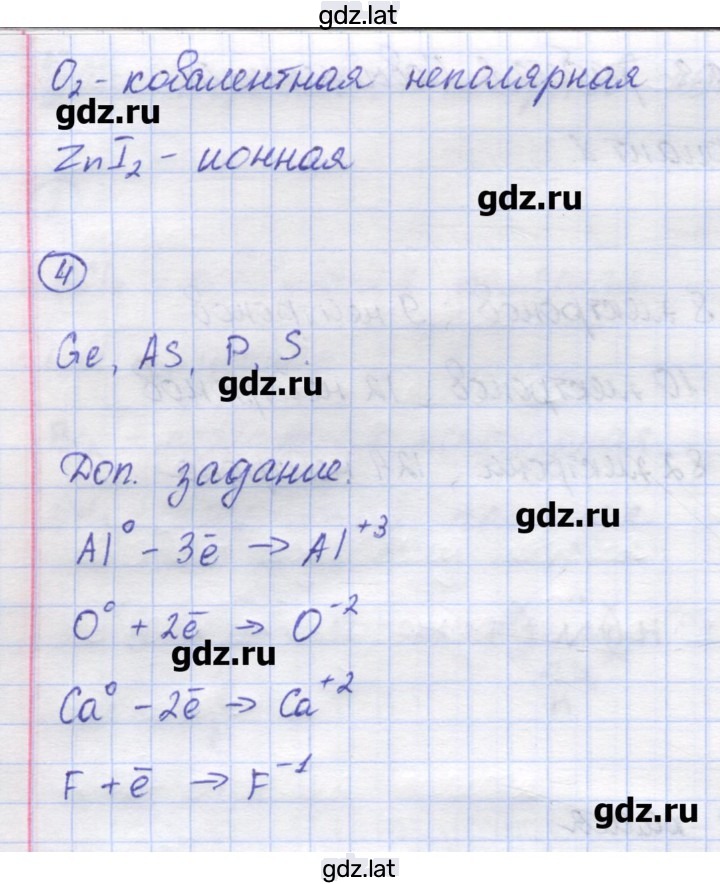 gdz.lat
O₂ - ковалентная неполярная
gdz.ru
ZnI₂ - ионная
gdz.ru
4
Ge, AS, P, S.
gdz.ru
Доп. задание.
gdz.ru
Al⁰ - 3ē → Al⁺³
O⁰ + 2ē → O⁻²
gdz.ru
Ca⁰ - 2ē → Ca⁺²
F + ē → F⁻¹
gdz.ru
gdz.lat